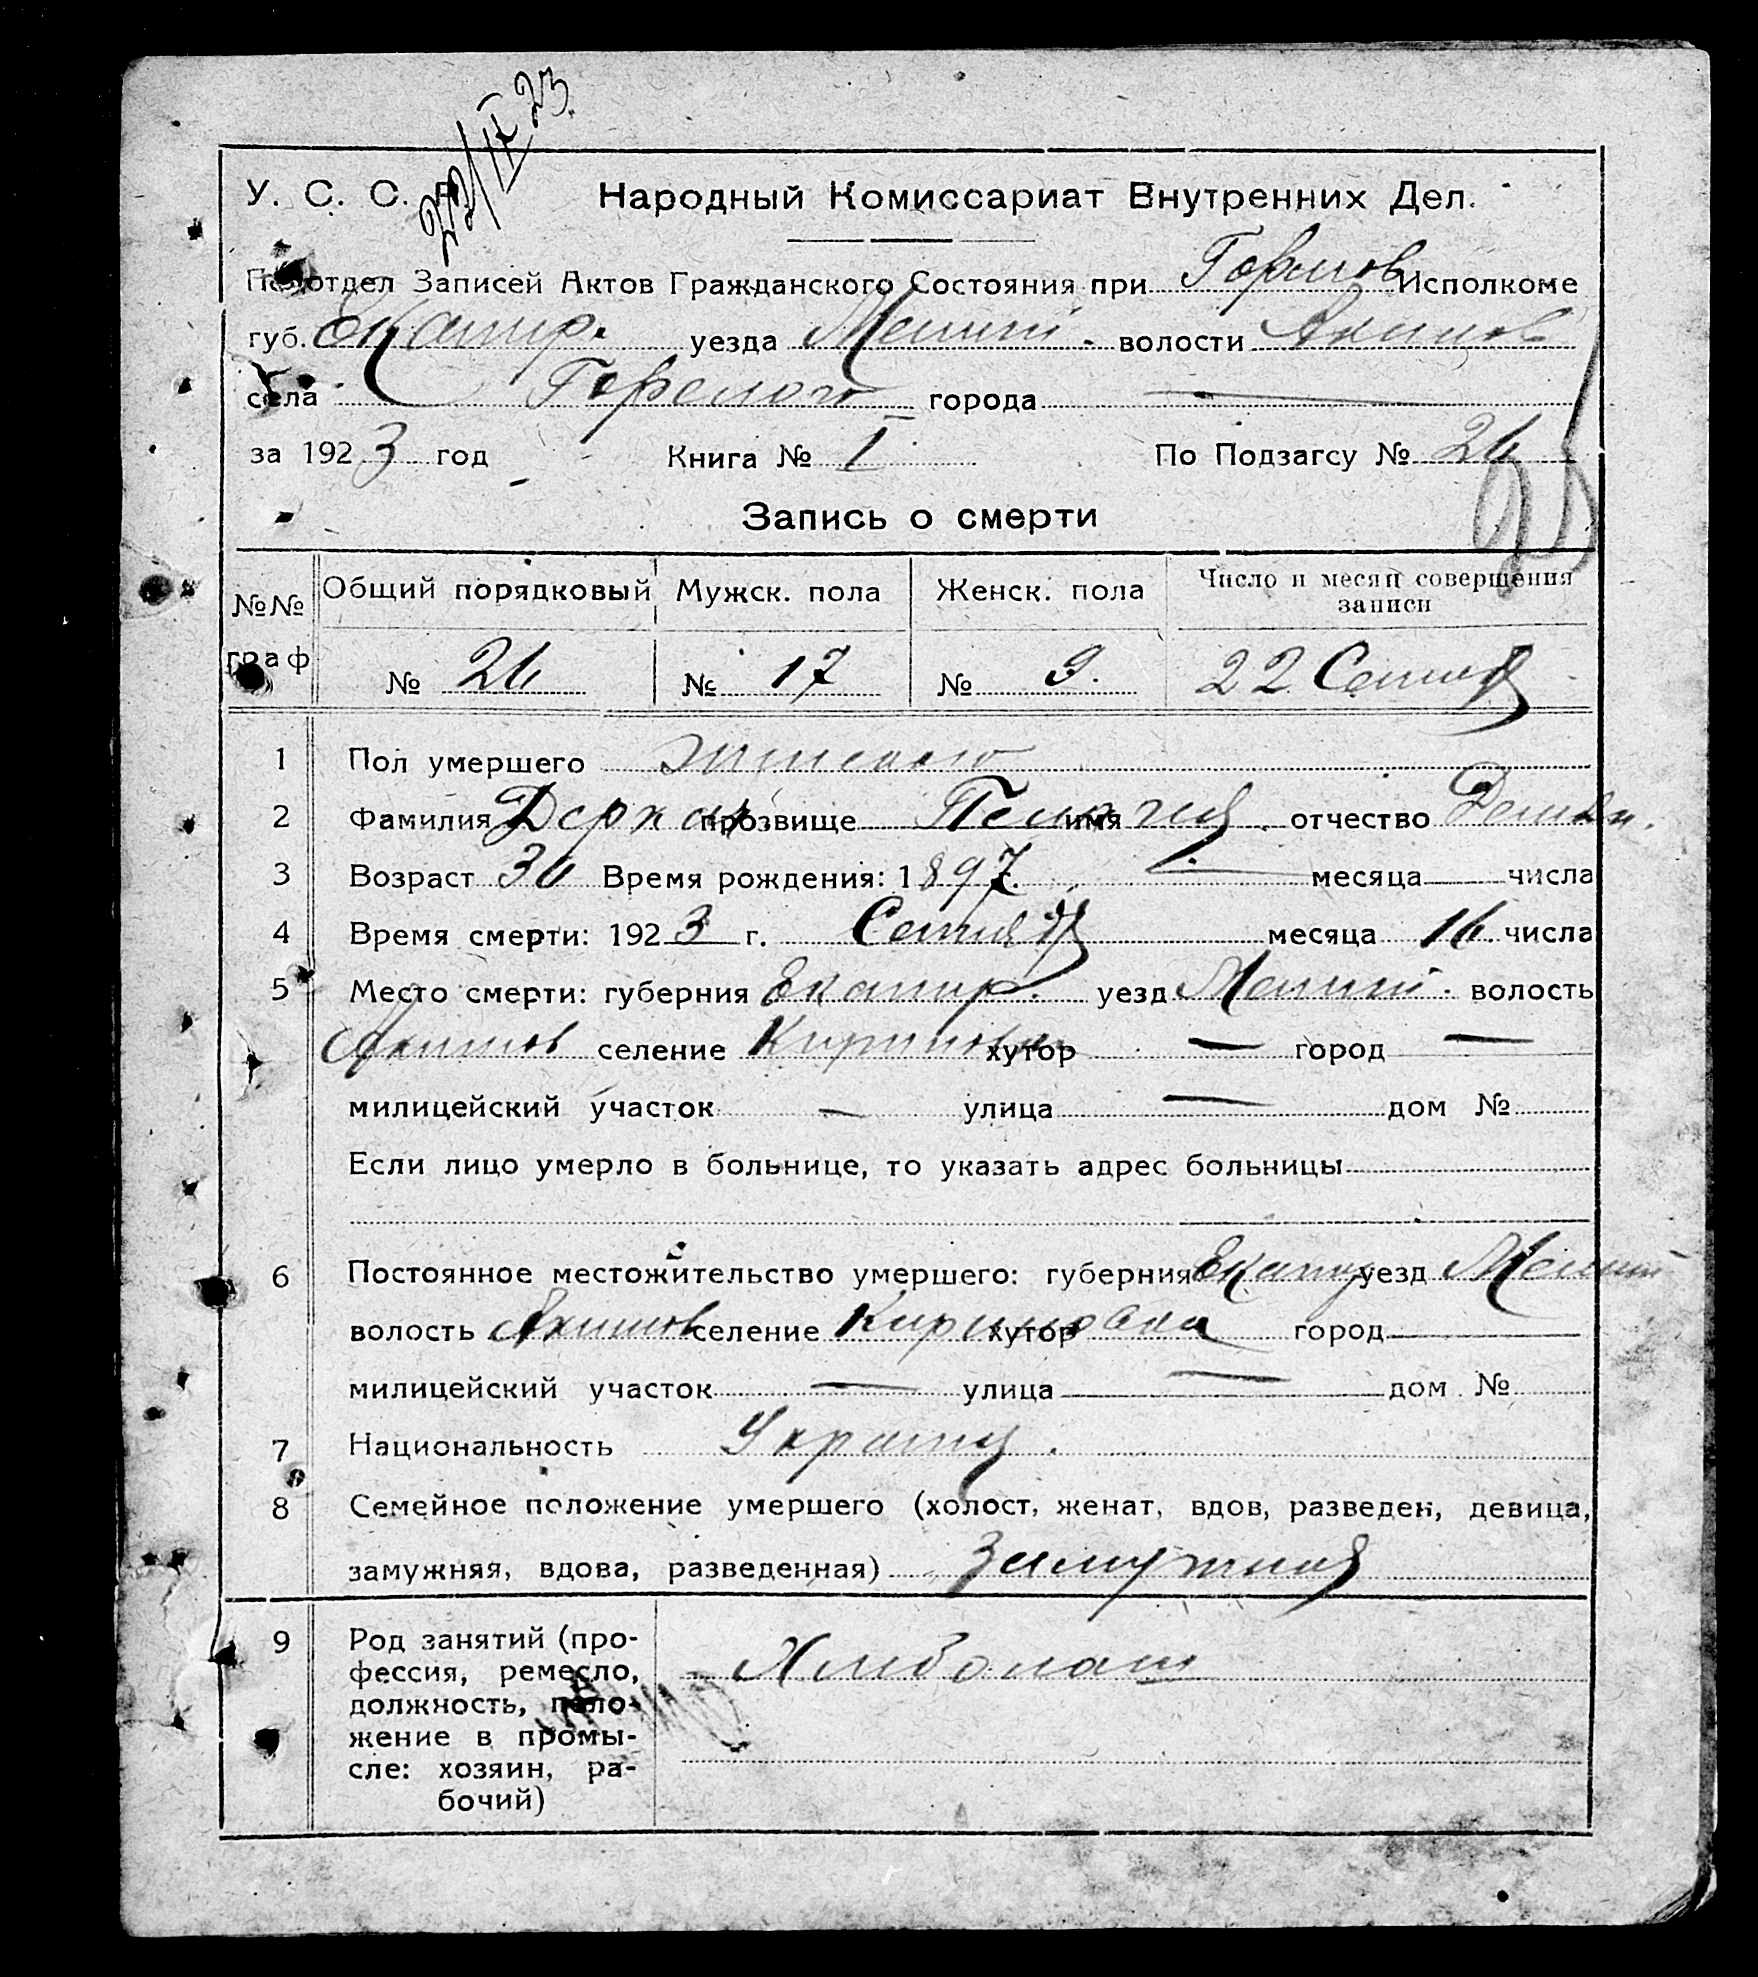 22/IX 23.
У. С. С. Р. Народный Комиссариат Внутренних Дел.
Подотдел Записей Актов Гражданского Состояния при Горелов Исполкоме
губ. Екатир. уезда Мелит. волости Акимов
села Горелого города —
за 1923 год Книга № I По Подзагсу № 26
Запись о смерти
№№ граф Общий порядковый Мужск. пола Женск. пола Число и месяц совершения записи
№ 26 № 17 № 9. 22 Сентяб
1 Пол умершего женского
2 Фамилия Деркач прозвище Пелагия имя отчество Демян.
3 Возраст 36 Время рождения: 1897 г. — месяца числа
4 Время смерти: 1923 г. Сентяб месяца 16 числа
5 Место смерти: губерния Екатир. уезд Мелит. волость
Акимов селение Кириловка хутор — город —
милицейский участок — улица — дом №
Если лицо умерло в больнице, то указать адрес больницы
6 Постоянное местожительство умершего: губерния Екатир уезд Мелит
волость Акимов селение Кириловка хутор город
милицейский участок — улица — дом №
7 Национальность Украин.
8 Семейное положение умершего (холост, женат, вдов, разведен, девица,
замужняя, вдова, разведенная) Замужняя
9 Род занятий (про-
фессия, ремесло,
должность, поло-
жение в промы-
сле: хозяин, ра-
бочий)
Хлебопаш